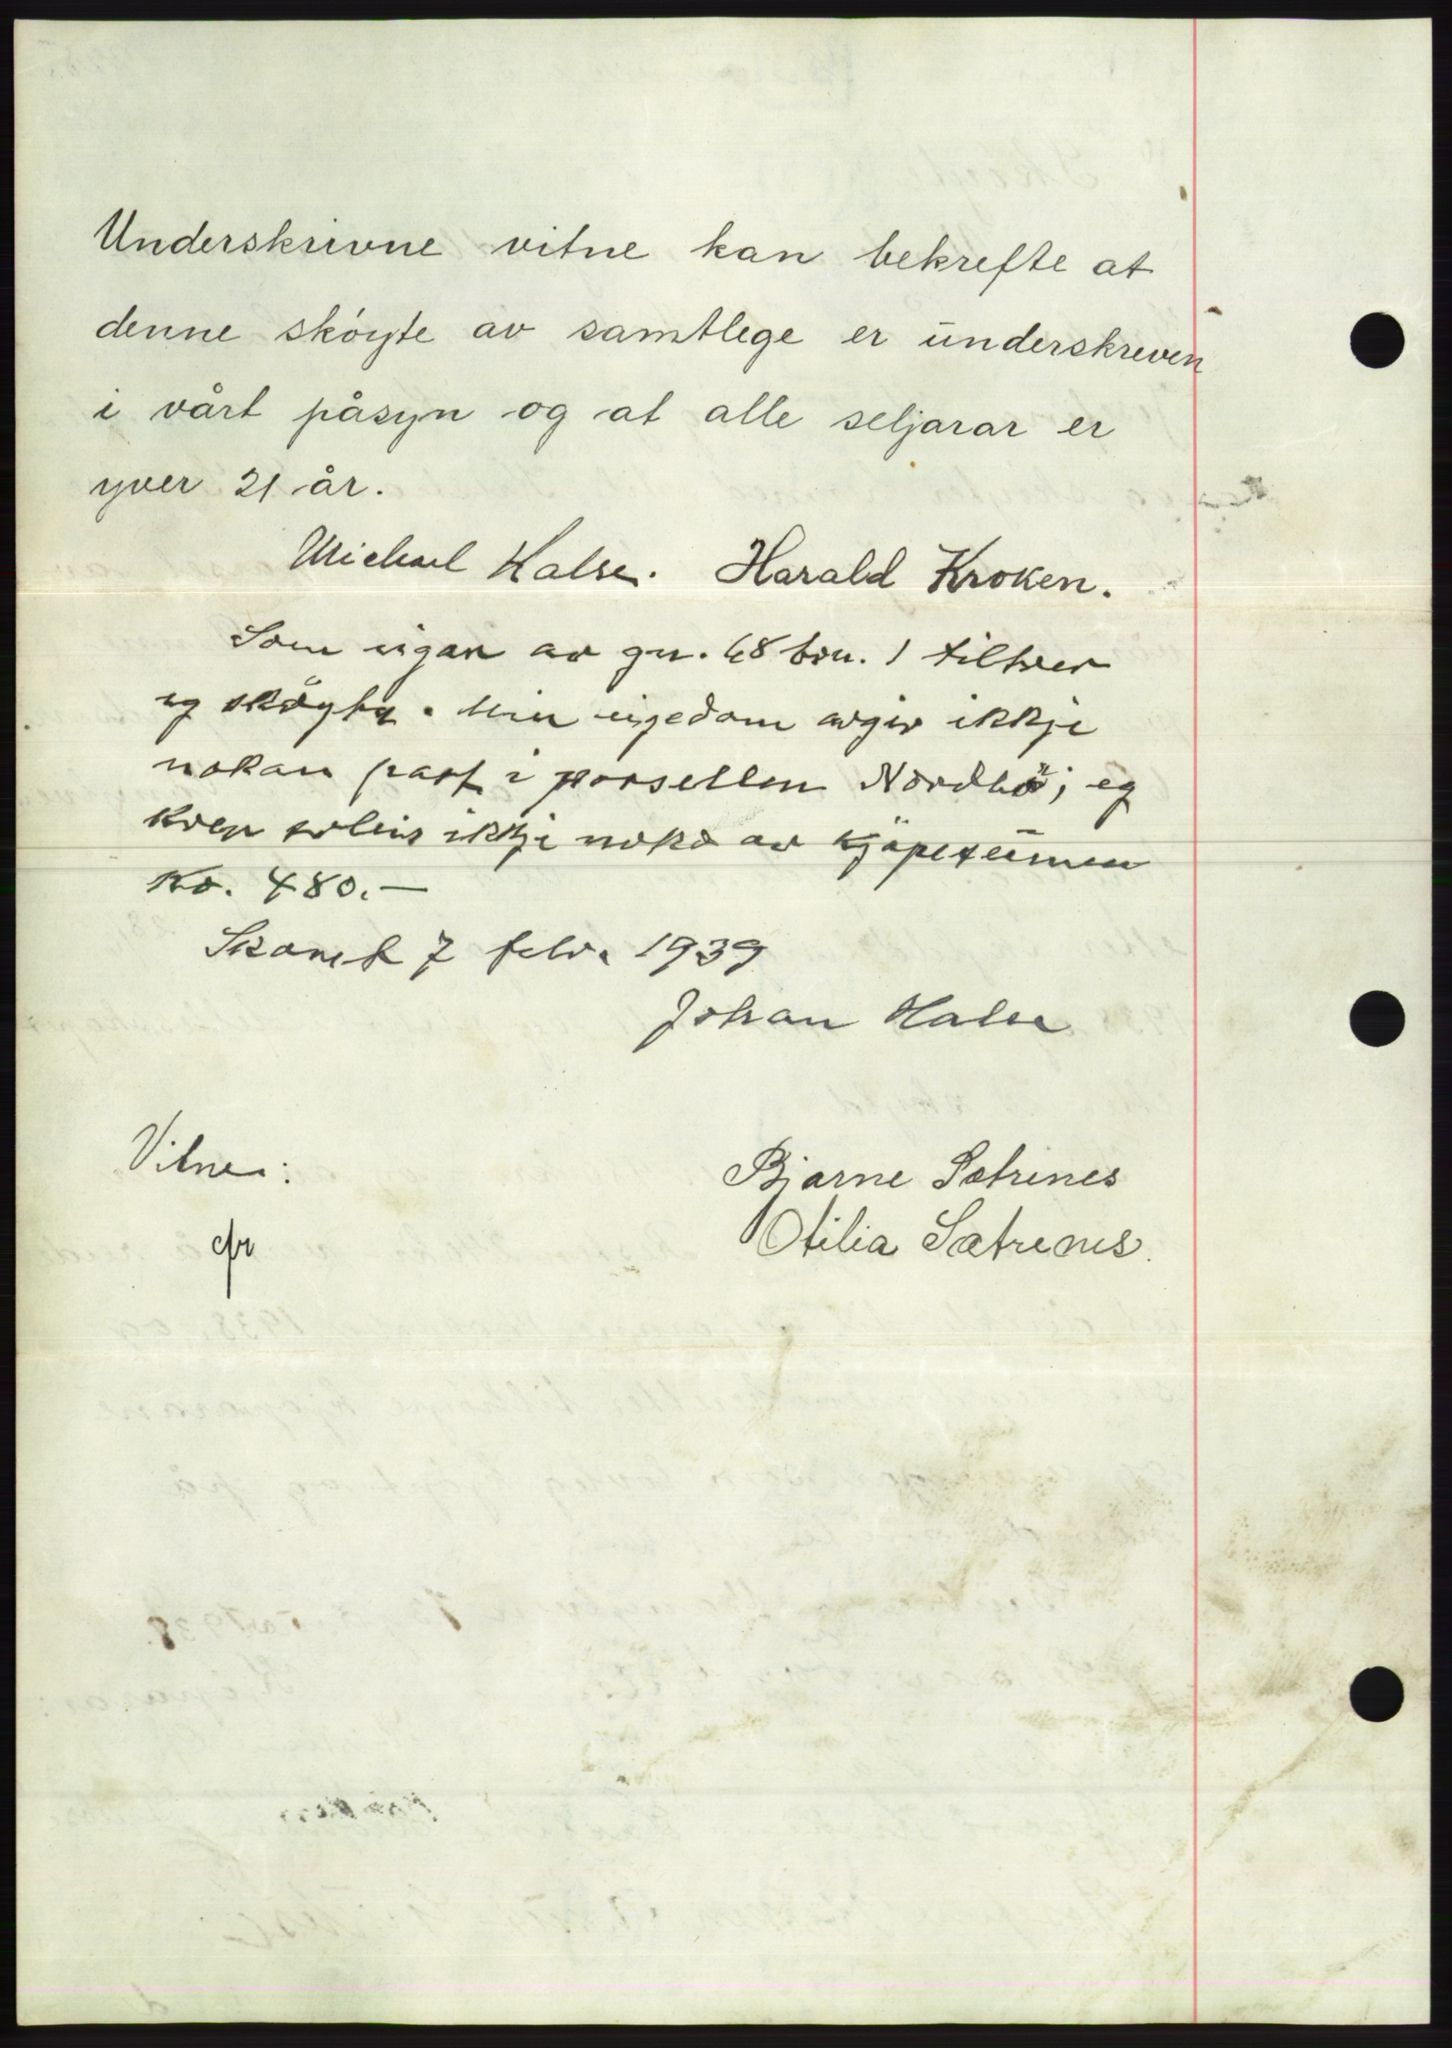 Underskrivne vitne kan bekrefte at
denne skóyte av samtlege er underskreven
i vårt påsyn og at alle seljarar er
yver 21 år.
Michael Halse. Harald Kroken.
Som eigar av gn. 68 bn. 1 tiltrer
eg sköyte. Min eigedom avgir ikkje
nokon part i parsellen Nordbö; eg
krev soleis ikkje noko av kjöpesumen
Kr. 480.—
7 febr. 1939
Johan Halse
Vitne:
Bjarne Sætrenes
cfr
Otilia Sætrenes.